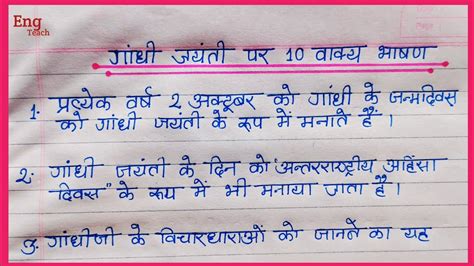 Eng
Teach
गांधी जयंती पर 10 वाक्य भाषण
1. प्रत्येक वर्ष 2 अक्टूबर को गांधी के जन्मदिवस
को गांधी जयंती के रूप में मनाते हैं ।
2. गांधी जयंती के दिन को "अन्तरराष्ट्रीय अहिंसा
दिवस" के रूप में भी मनाया जाता है ।
3. गांधीजी के विचारधाराओं को जानने का यह